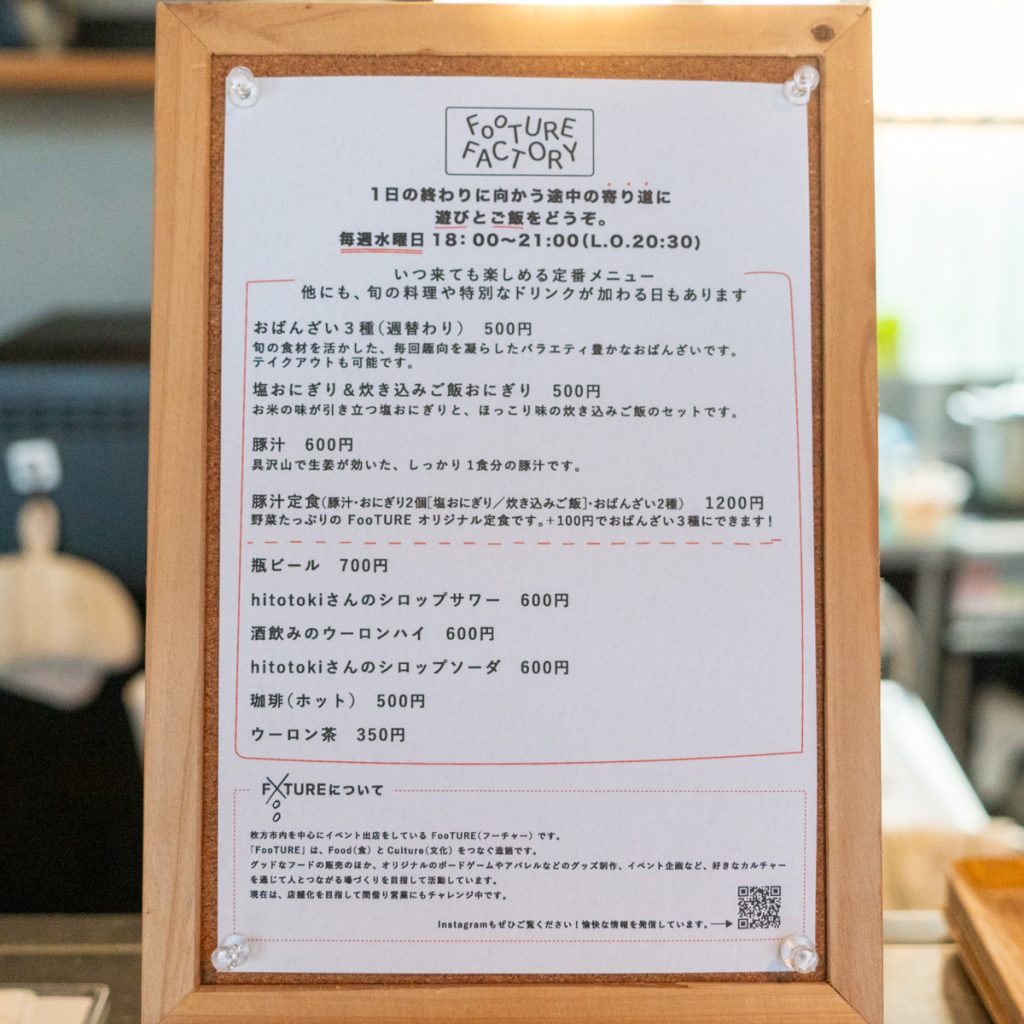 FooTURE
FACTORY
1日の終わりに向かう途中の寄り道に
遊びとご飯をどうぞ。
毎週水曜日 18:00〜21:00(L.O.20:30)
いつ来ても楽しめる定番メニュー
他にも、旬の料理や特別なドリンクが加わる日もあります
おばんざい3種(週替わり) 500円
旬の食材を活かした、毎回趣向を凝らしたバラエティ豊かなおばんざいです。
テイクアウトも可能です。
塩おにぎり&炊き込みご飯おにぎり 500円
お米の味が引き立つ塩おにぎりと、ほっこり味の炊き込みご飯のセットです。
豚汁 600円
具沢山で生姜が効いた、しっかり1食分の豚汁です。
豚汁定食(豚汁・おにぎり2個[塩おにぎり/炊き込みご飯]・おばんざい2種) 1200円
野菜たっぷりの FooTURE オリジナル定食です。+100円でおばんざい3種にできます!
瓶ビール 700円
hitotokiさんのシロップサワー 600円
酒飲みのウーロンハイ 600円
hitotokiさんのシロップソーダ 600円
珈琲(ホット) 500円
ウーロン茶 350円
FooTUREについて
枚方市内を中心にイベント出店をしている FooTURE(フーチャー)です。
「FooTURE」は、Food(食)とCulture(文化)をつなぐ造語です。
グッドなフードの販売のほか、オリジナルのボードゲームやアパレルなどのグッズ制作、イベント企画など、好きなカルチャー
を通じて人とつながる場づくりを目指して活動しています。
現在は、店舗化を目指して間借り営業にもチャレンジ中です。
Instagramもぜひご覧ください|愉快な情報を発信しています。→